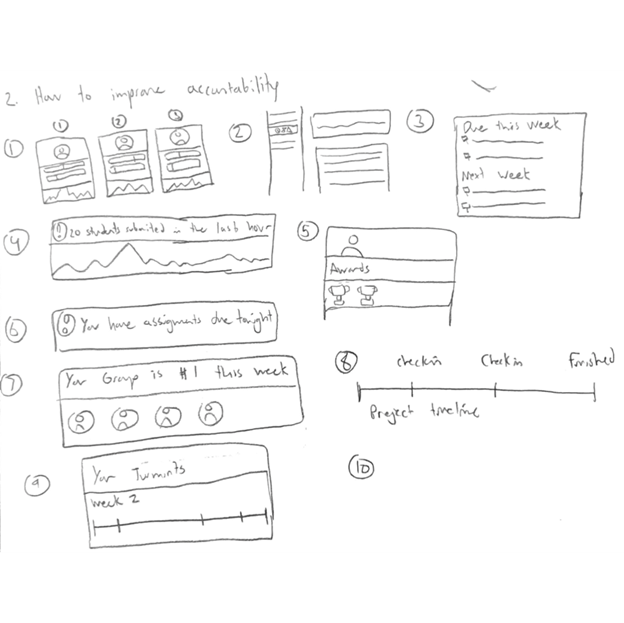 2. How to improve accountability
① ② ③
①
②
Q&A
③
Due this week
Next week
④
! 20 students submitted in the last hour
⑤
Awards
⑥
You have assigments due tonight
⑦
Your Group is #1 this week
⑧
Checkin Checkin Finished
Project timeline
⑨
Your
Week 2
⑩